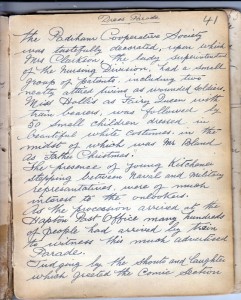 Dress Parade
41
The Padiham Cooperative Society
was tastefully decorated, upon which
Mrs Clarkson the lady superintendent
of the Nursing Division, had a small
group of patients, including two
neatly attired lying as wounded soldiers.
Miss Hollis as Fairy Queen with
train bearers, was followed by
50 small children dressed in
beautiful white costumes, in the
midst of which was Mr Bland
as Father Christmas.
The presence of Young Kitchener
stepping between Naval and Military
representatives, were of much
interest to the onlookers.
As the procession arrived at the
Hapton Post Office many hundreds
of people had arrived by train
to witness this much advertised
Parade.
Judging by the shouts and laughter
which greeted the Comic Section